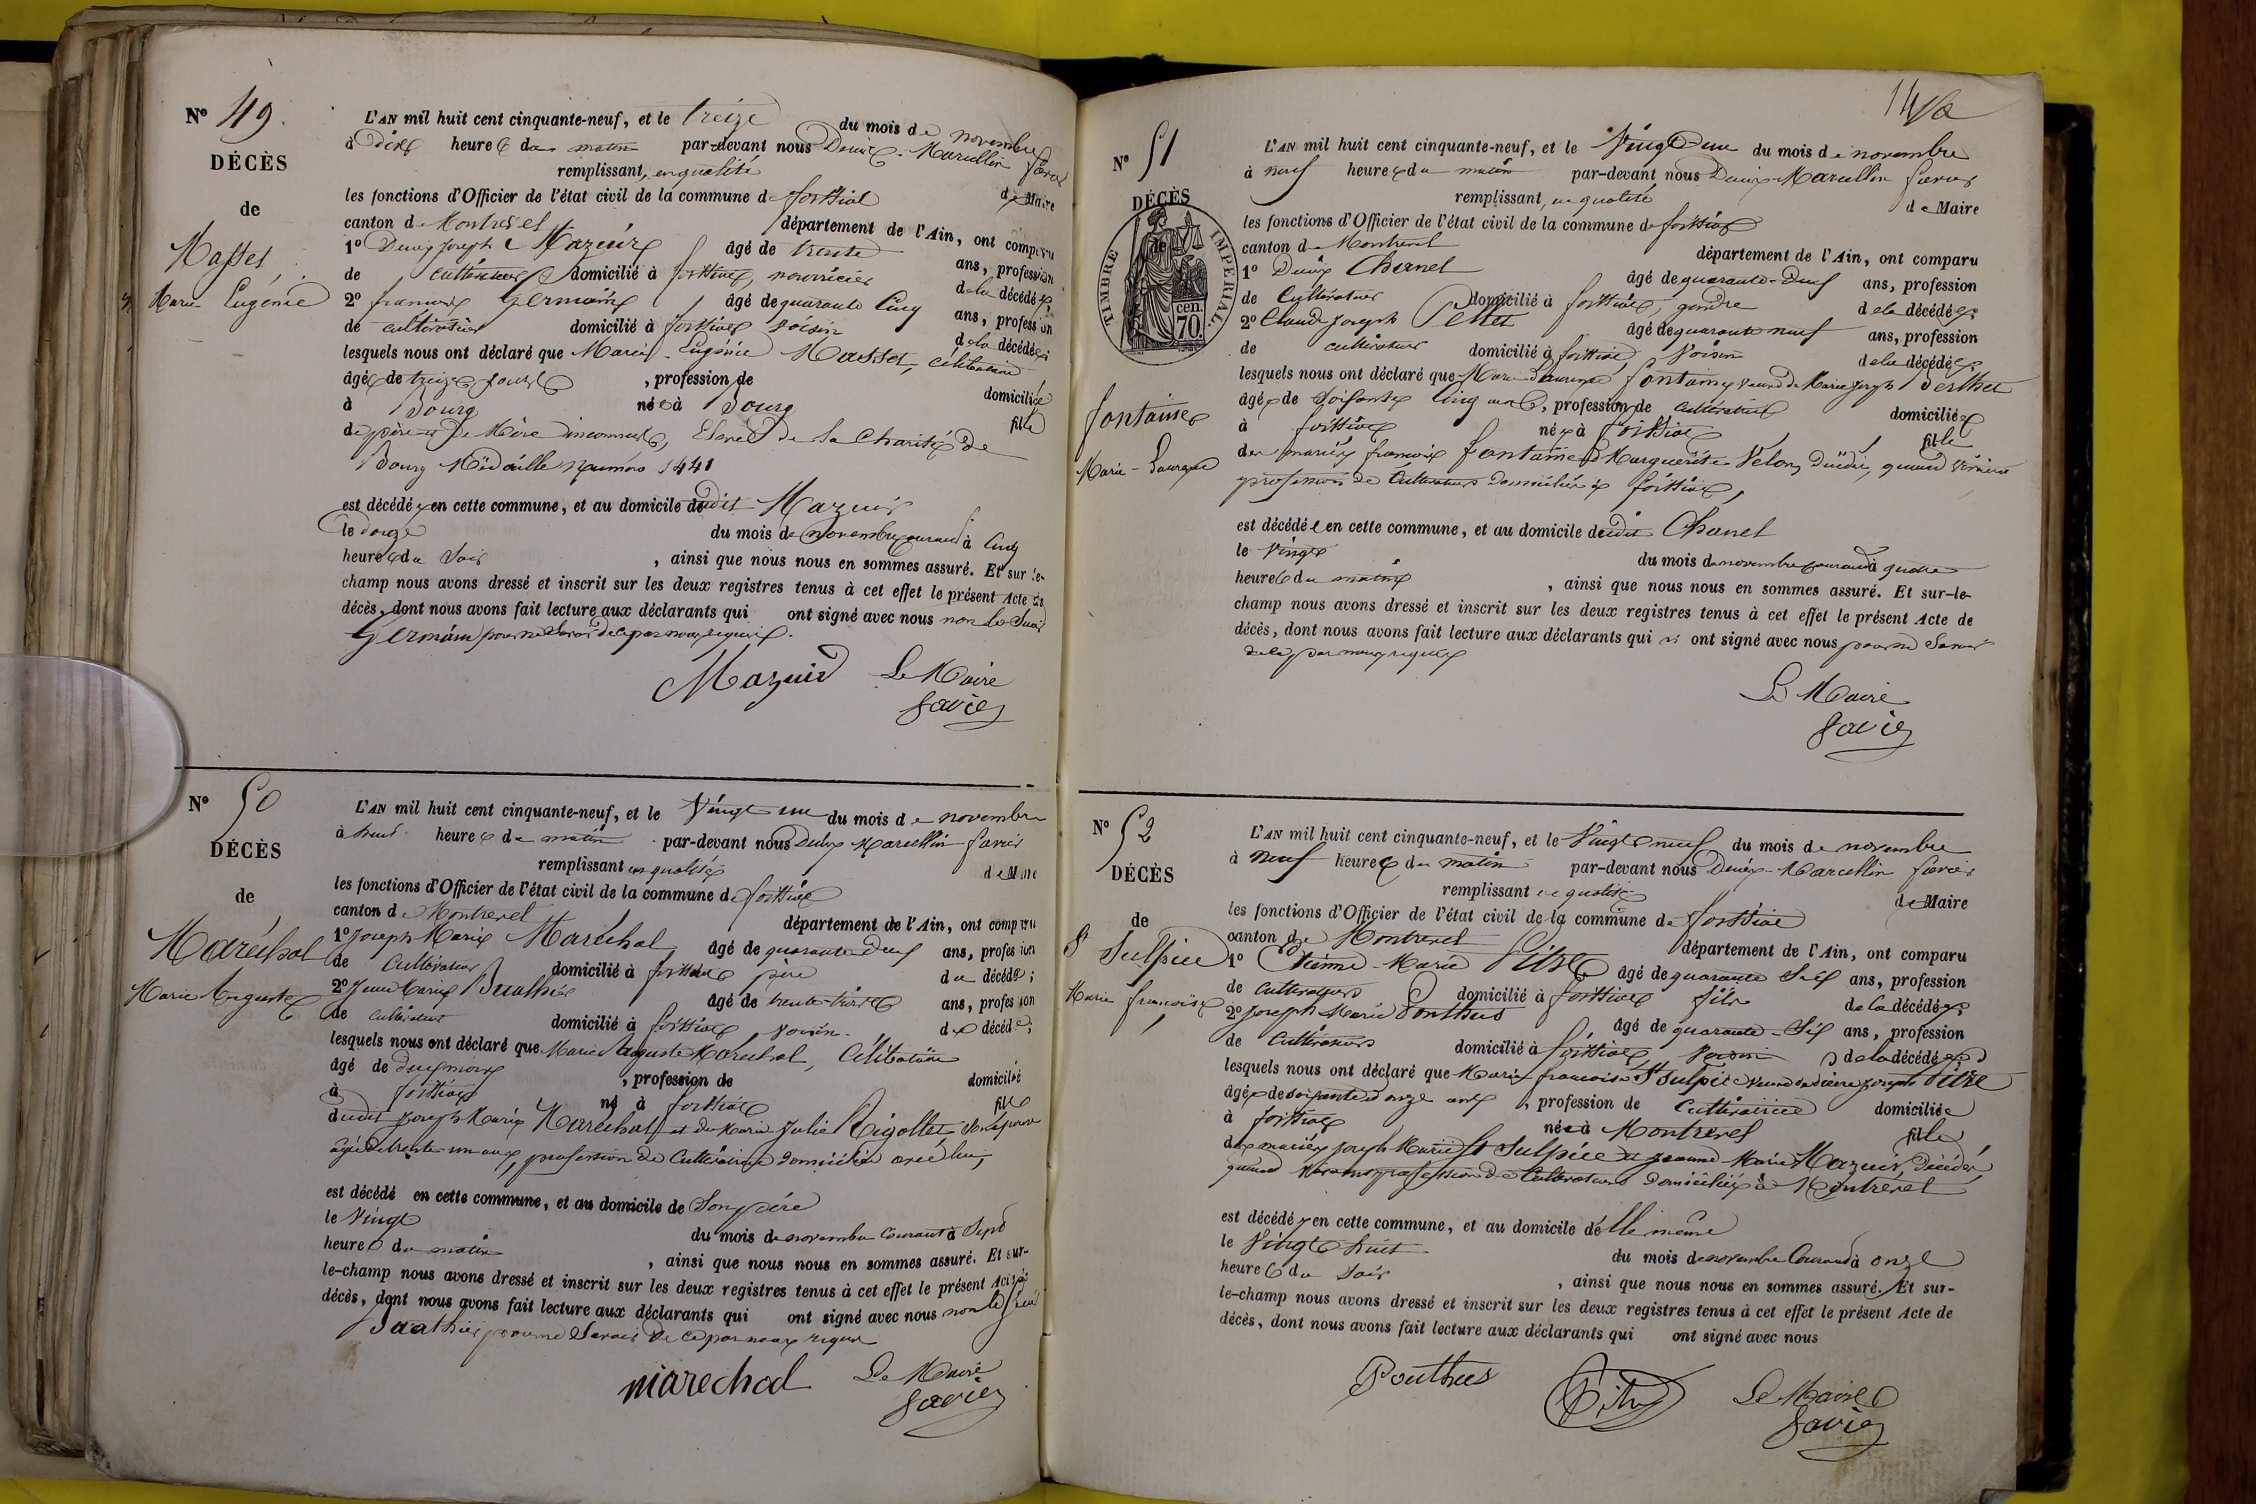 Nº 49
DÉCÈS
de
Masset
Marie Eugénie
L'AN mil huit cent cinquante-neuf, et le treize du mois de novembre
à dix heures du matin par-devant nous Denis-Marcellin favier
remplissant en qualité de Maire
les fonctions d'Officier de l'état civil de la commune de foissiat
canton de Montrevel département de l'Ain, ont comparu
1º Denis Joseph Mazuir âgé de trente ans, profession
de cultivateur domicilié à foissiat, nourricier de la décédée;
2º françois Germain âgé de quarante cinq ans, profession
de cultivateur domicilié à foissiat voisin de la décédée;
lesquels nous ont déclaré que Marie Eugénie Masset, célibataire
âgée de treize jours, profession de domiciliée
à Bourg née à Bourg fille
de père et de Mère inconnus, Elève de la Charité de
Bourg Médaille Numéro 1441
est décédée en cette commune, et au domicile dudit Mazuir
le douze du mois de novembre courant à cinq
heures du soir, ainsi que nous nous en sommes assuré. Et sur le-
champ nous avons dressé et inscrit sur les deux registres tenus à cet effet le présent Acte de
décès, dont nous avons fait lecture aux déclarants qui ont signé avec nous non le sieur
Germain pour ne savoir de ce par nous requis.
Mazuir Le Maire
favier
Nº 50
DÉCÈS
de
Maréchal
Marie Auguste
L'AN mil huit cent cinquante-neuf, et le Vingt un du mois de novembre
à huit heures du matin par-devant nous Denis Marcellin favier
remplissant en qualité de Maire
les fonctions d'Officier de l'état civil de la commune de foissiat
canton de Montrevel département de l'Ain, ont comparu
1º Joseph Marie Maréchal, âgé de quarante deux ans, profession
de cultivateur domicilié à foissiat père du décédé;
2º Jean Marie Buathier âgé de trente trois ans, profession
de cultivateur domicilié à foissiat voisin du décédé;
lesquels nous ont déclaré que Marie Auguste Maréchal, célibataire
âgé de deux mois, profession de domicilié
à foissiat né à foissiat fils
dudit Joseph Marie Maréchal et de Marie Julie Rigollet son épouse
âgée de trente un ans, profession de cultivatrice domiciliée avec lui,
est décédé en cette commune, et au domicile de son père
le vingt du mois de novembre courant à sept
heures du matin, ainsi que nous nous en sommes assuré. Et sur-
le-champ nous avons dressé et inscrit sur les deux registres tenus à cet effet le présent Acte de
décès, dont nous avons fait lecture aux déclarants qui ont signé avec nous non le sieur
Buathier pour ne savoir de ce par nous requis
marechal Le Maire
favier
14
Nº 51
DÉCÈS
de
TIMBRE IMPÉRIAL.
70 cen.
fontaine
Marie-Laurence
L'AN mil huit cent cinquante-neuf, et le Vingt un du mois de novembre
à neuf heures du matin par-devant nous Denis-Marcellin favier
remplissant en qualité de Maire
les fonctions d'Officier de l'état civil de la commune de foissiat
canton de Montrevel département de l'Ain, ont comparu
1º Denis Chanel âgé de quarante-deux ans, profession
de cultivateur domicilié à foissiat, gendre de la décédée;
2º Claude Joseph Pettet âgé de quarante neuf ans, profession
de cultivateur domicilié à foissiat voisin de la décédée;
lesquels nous ont déclaré que Marie Laurence fontaine veuve de Marie Joseph Berthet
âgée de soixante cinq ans, profession de cultivatrice domiciliée
à foissiat née à foissiat fille
des mariés françois fontaine et Marguerite Velon, décédés, quand vivaient
profession de cultivateurs domiciliés à foissiat,
est décédée en cette commune, et au domicile dudit Chanel
le vingt du mois de novembre courant à quatre
heures du matin, ainsi que nous nous en sommes assuré. Et sur-le-
champ nous avons dressé et inscrit sur les deux registres tenus à cet effet le présent Acte de
décès, dont nous avons fait lecture aux déclarants qui n'ont signé avec nous pour ne savoir
de ce par nous requis
Le Maire
favier
Nº 52
DÉCÈS
de
St Sulpice
Marie françoise
L'AN mil huit cent cinquante-neuf, et le Vingt neuf du mois de novembre
à neuf heures du matin par-devant nous Denis-Marcellin favier
remplissant en qualité de Maire
les fonctions d'Officier de l'état civil de la commune de foissiat
canton de Montrevel département de l'Ain, ont comparu
1º Etienne-Marie Pitre âgé de quarante six ans, profession
de cultivateur domicilié à foissiat fils de la décédée;
2º Joseph Marie Ponthus âgé de quarante-six ans, profession
de cultivateur domicilié à foissiat, voisin de la décédée;
lesquels nous ont déclaré que Marie françoise St Sulpice veuve de Pierre Joseph Pitre
âgée de soixante onze ans, profession de cultivatrice domiciliée
à foissiat née à Montrevel fille
des mariés Joseph Marie St Sulpice et Jeanne Marie Mazuir, décédés,
quand vivans profession de cultivateurs domiciliés à Montrevel
est décédée en cette commune, et au domicile d'elle même
le Vingt huit du mois de novembre courant à onze
heures du soir, ainsi que nous nous en sommes assuré. Et sur-
le-champ nous avons dressé et inscrit sur les deux registres tenus à cet effet le présent Acte de
décès, dont nous avons fait lecture aux déclarants qui ont signé avec nous
Ponthus Pitre Le Maire
favier